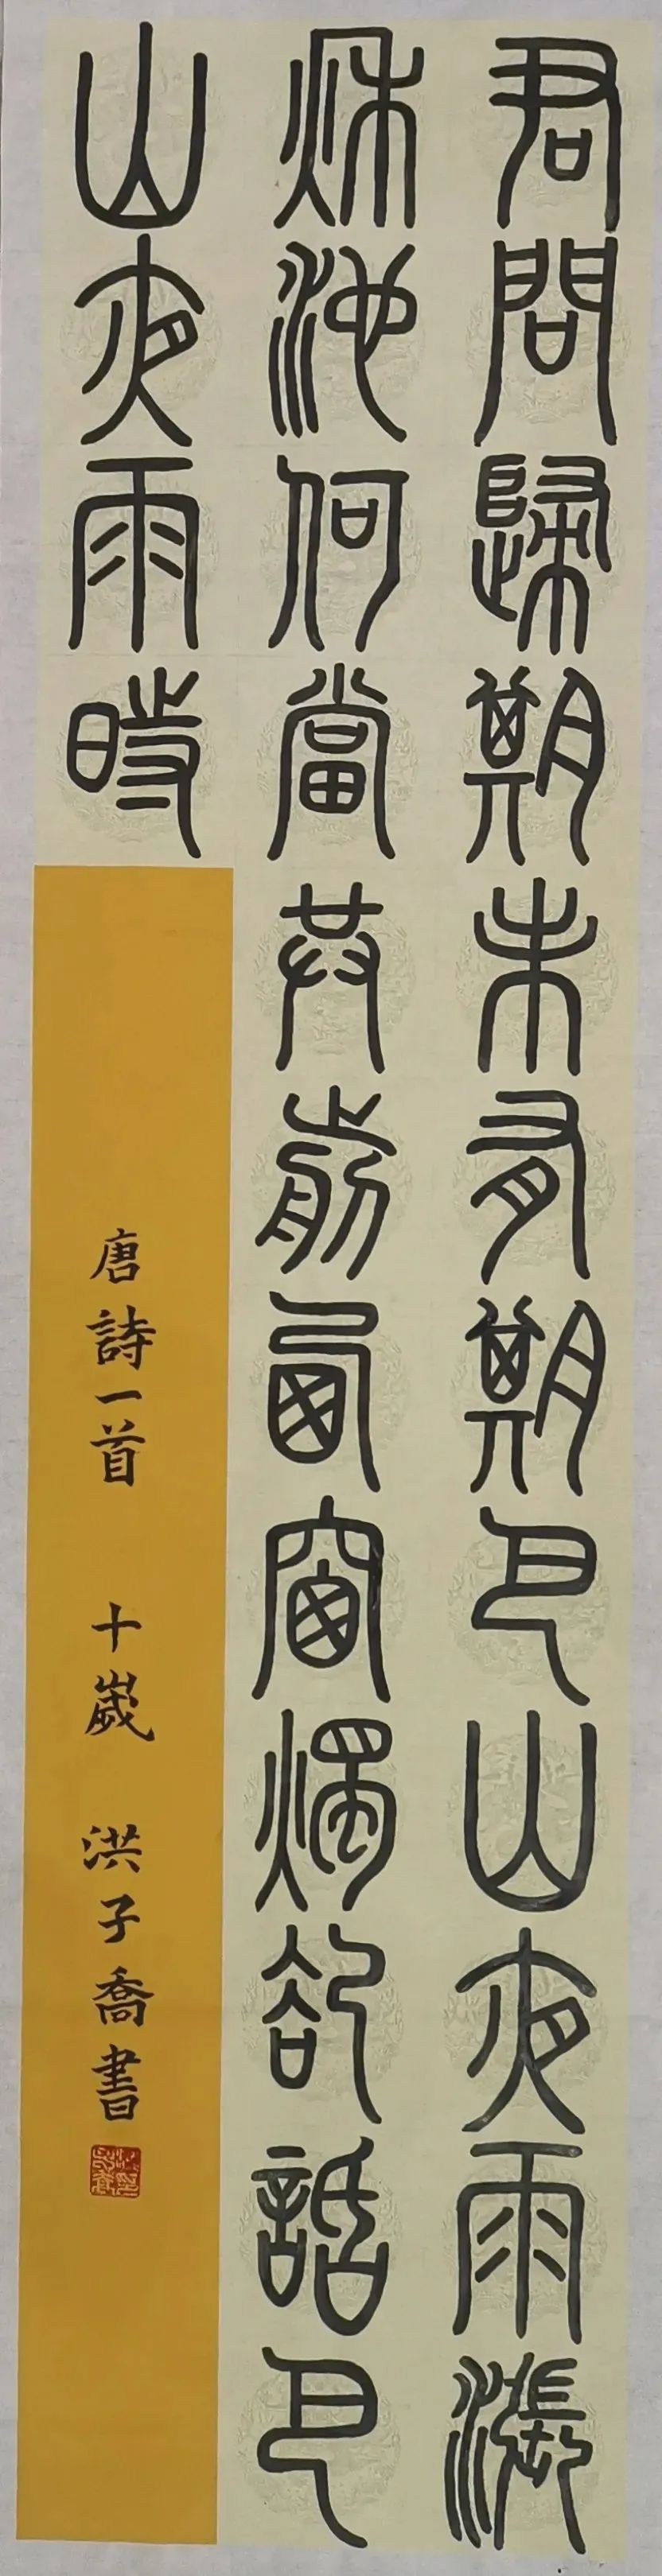 君問歸期未有期巴山夜雨漲
秋池何當共剪西窗燭卻話巴
山夜雨時
唐詩一首 十歲 洪子喬書